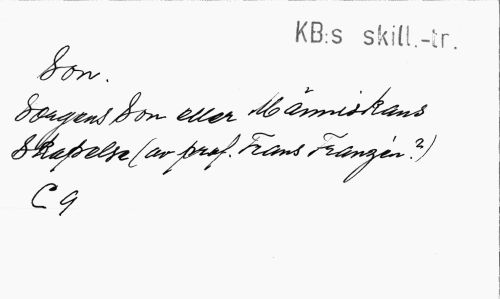 KB:s skill.-tr.
Son.
Sorgens Son eller Människans
Skapelse (av prof. Frans Franzén?)
C 9